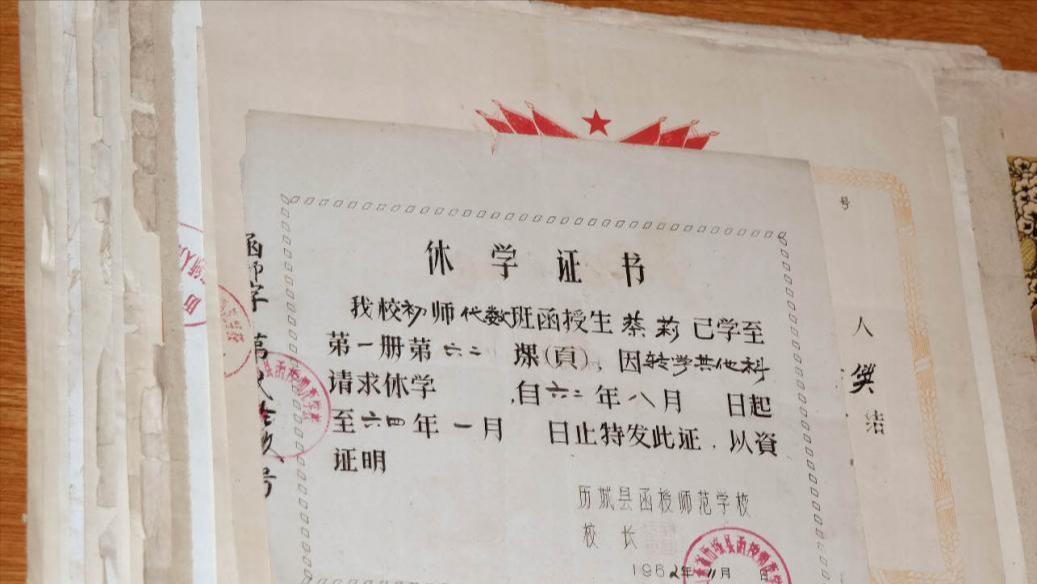 休学证书
我校初师代数班函授生蔡莉已学至
第一册第六二 课(頁),因转学其他科
请求休学 ,自六二年八月 日起
至六四年一月 日止特发此证,以資
证明
历城县函授师范学校
校 长
1962年11月 日
函师字第 号
号
人
结